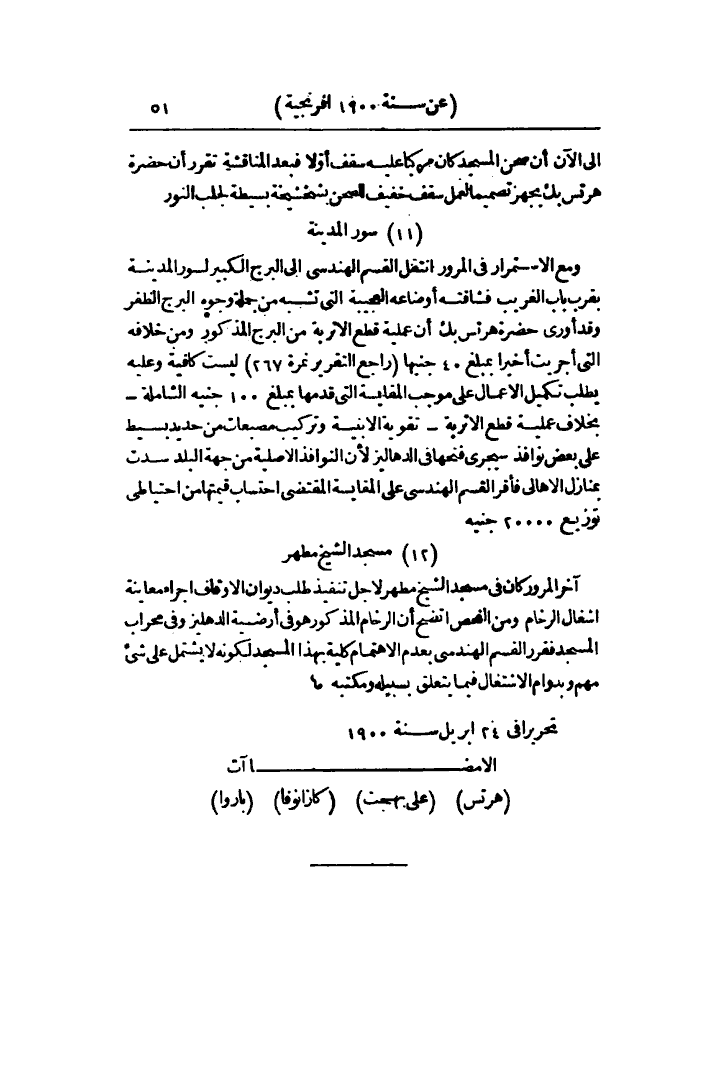 (عن سنة ١٩٠٠ افرنجية) ٥١
الى الآن أن صحن المسجد كان مركبا عليه سقف أولا فبعد المناقشة تقرر أن حضرة
هرتس بك يجهز تصميما لعمل سقف خفيف للصحن بشخشيخة بسيطة لجلب النور
(١١) سور المدينة
ومع الاستمرار فى المرور انتقل القسم الهندسى الى البرج الكبير لسور المدينة
بقرب باب الغريب فشاقته أوضاعه العجيبة التى تشبه من جملة وجوه البرج الظفر
وقد أورى حضرة هرتس بك أن عملية قطع الاتربة من البرج المذكور ومن خلافه
التى أجريت أخيرا بمبلغ ٤٠ جنيها (راجع التقرير نمرة ٢٦٧) ليست كافية وعليه
يطلب تكميل الاعمال على موجب المقايسة التى قدمها بمبلغ ١٠٠ جنيه الشاملة –
بخلاف عملية قطع الاتربة – تقوية الابنية وتركيب مصبعات من حديد بسيط
على بعض نوافذ سيجرى فتحها فى الدهاليز لأن النوافذ الاصلية من جهة البلد سدت
بمنازل الاهالى فأقر القسم الهندسى على المقايسة المقتضى احتساب قيمتها من احتياطى
توزيع ٢٠٠٠٠ جنيه
(١٢) مسجد الشيخ مطهر
آخر المرور كان فى مسجد الشيخ مطهر لاجل تنفيذ طلب ديوان الاوقاف اجراء معاينة
اشغال الرخام ومن الفحص اتضح أن الرخام المذكور هو فى أرضية الدهليز وفى محراب
المسجد فقرر القسم الهندسى بعدم الاهتمام كلية بهذا المسجد لكونه لا يشتمل على شئ
مهم وبدوام الاشتغال فيما يتعلق بسبيله ومكتبه
تحريرا فى ٢٤ ابريل سنة ١٩٠٠
الامضاآت
(هرتس) (على بهجت) (كازانوفا) (باروا)